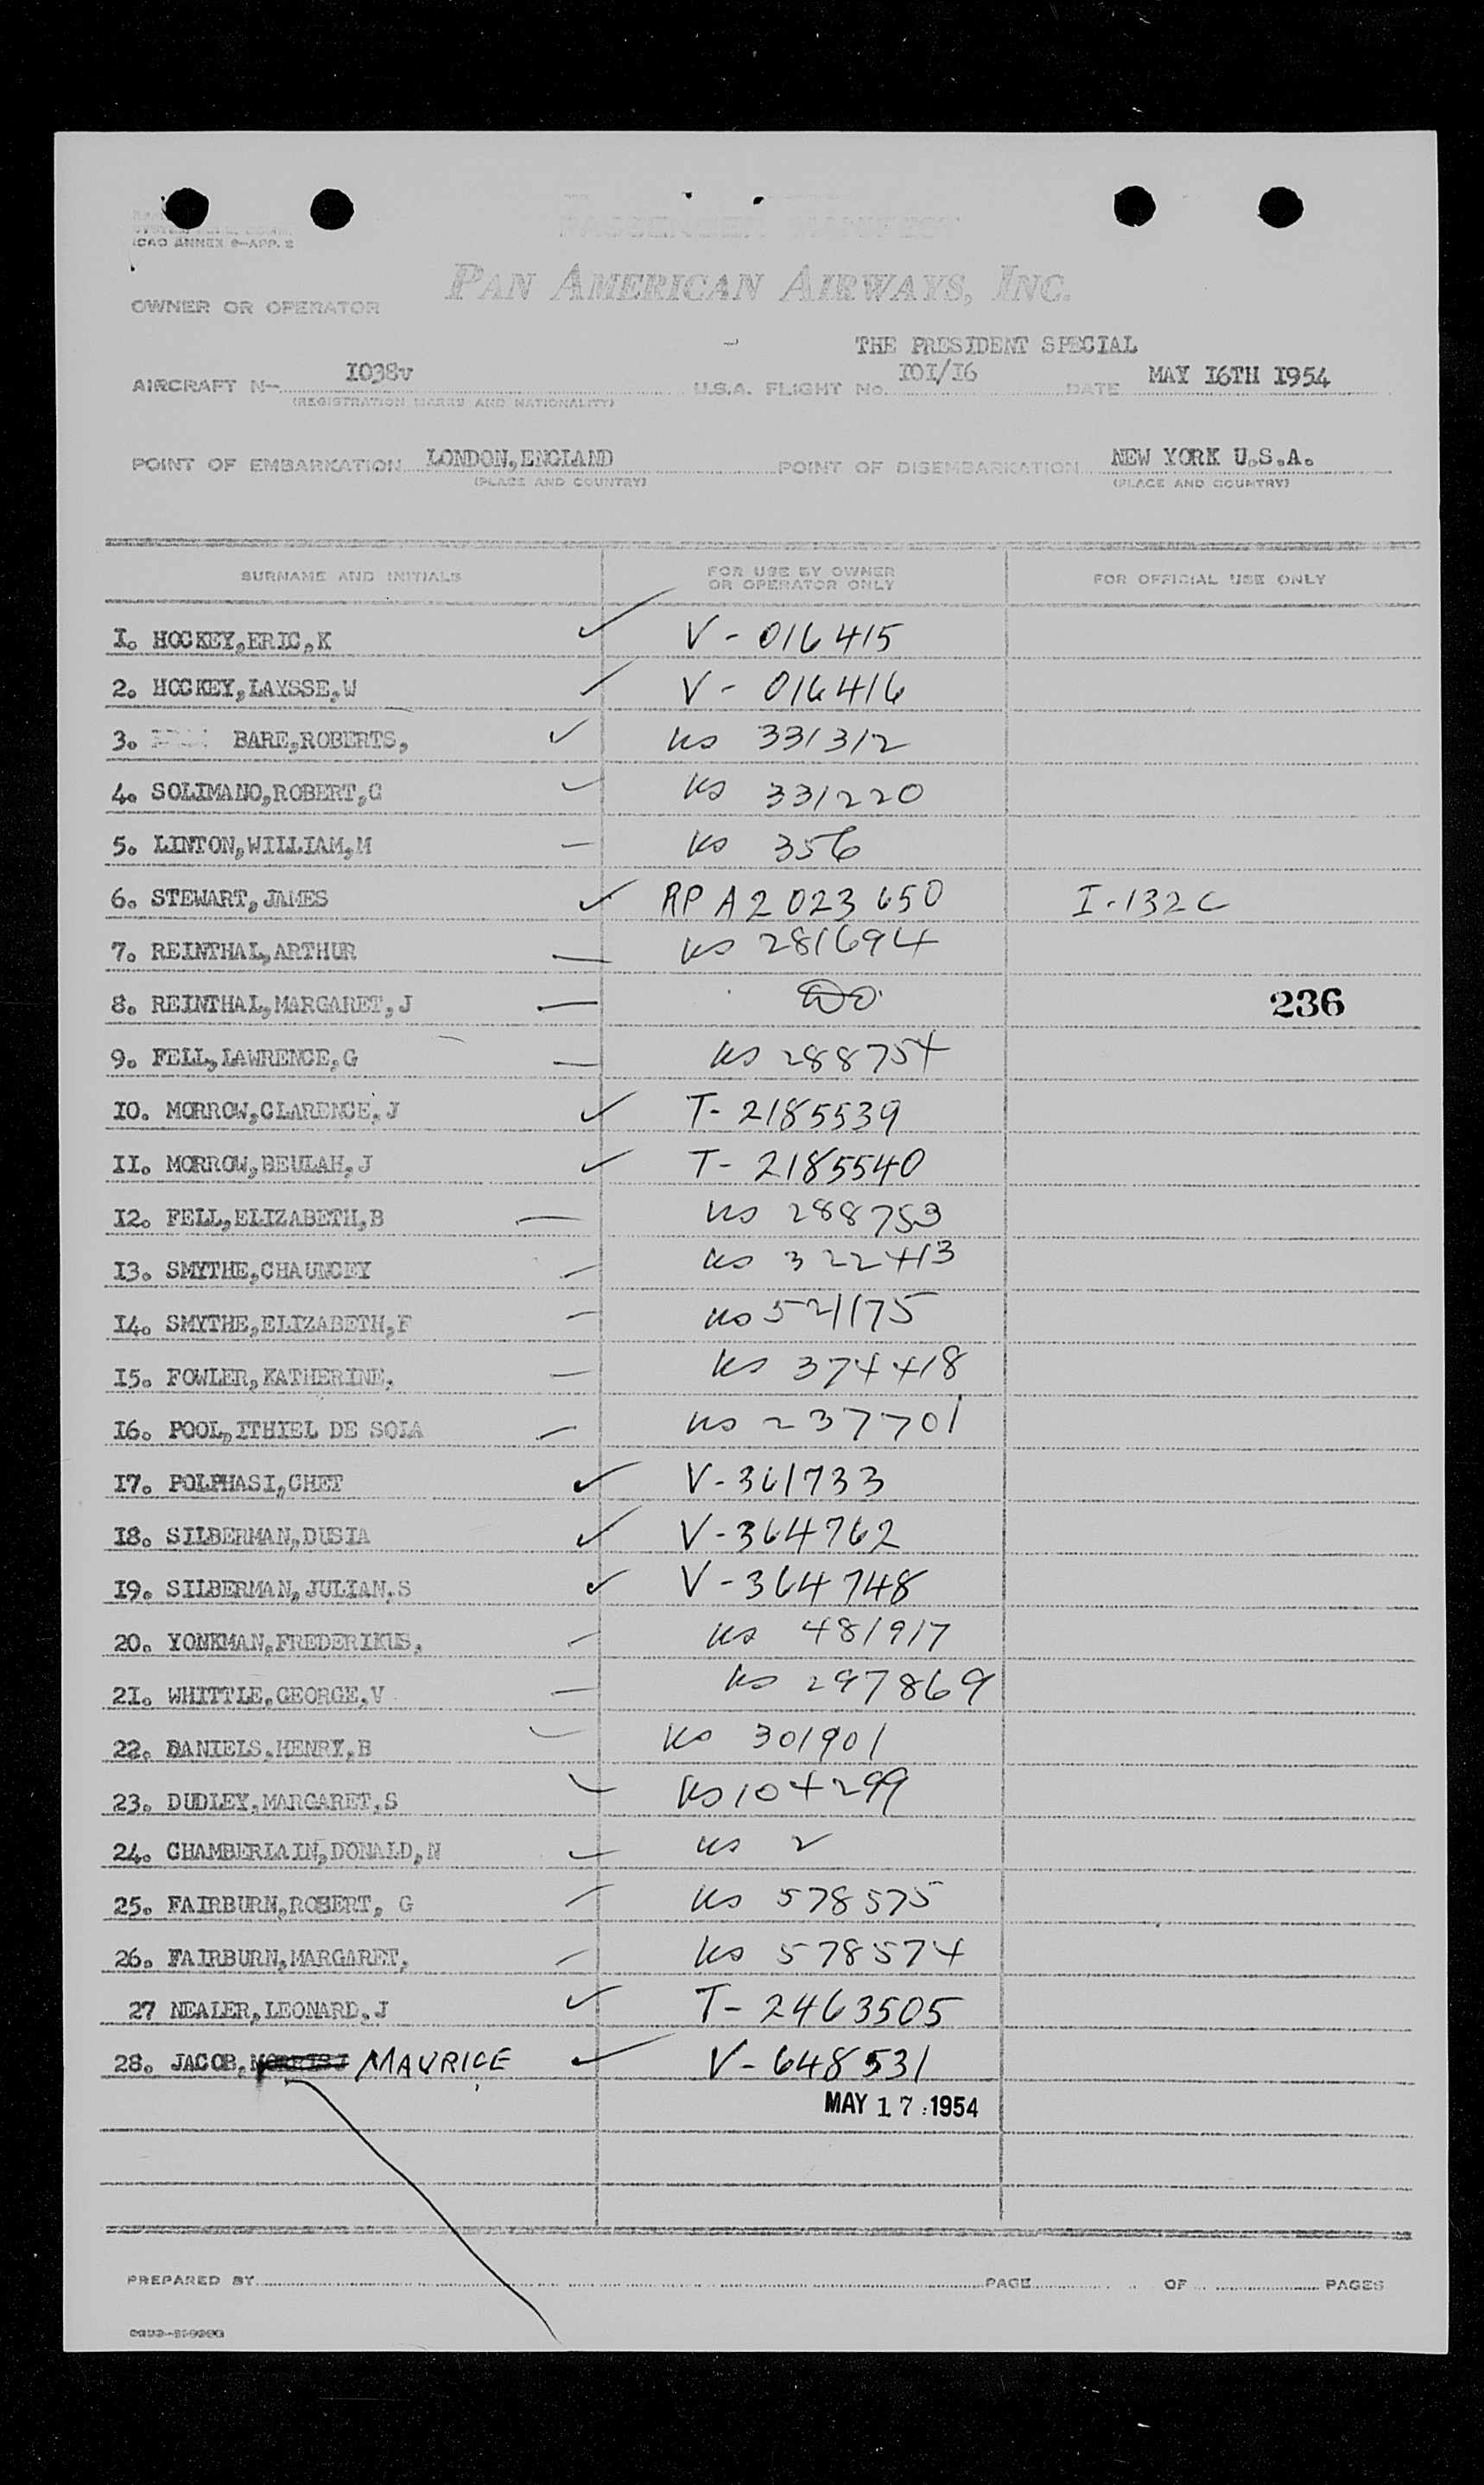 ICAO ANNEX 9-APP. 2
PAN AMERICAN AIRWAYS, INC.
OWNER OR OPERATOR
THE PRESIDENT SPECIAL
AIRCRAFT N- 1038v U.S.A. FLIGHT No. IOI/I6 DATE MAY I6TH I954
(REGISTRATION MARKS AND NATIONALITY)
POINT OF EMBARKATION LONDON,ENGLAND POINT OF DISEMBARKATION NEW YORK U.S.A.
(PLACE AND COUNTRY) (PLACE AND COUNTRY)
SURNAME AND INITIALS FOR USE BY OWNER OR OPERATOR ONLY FOR OFFICIAL USE ONLY
I. HOCKEY,ERIC,K ✓ V - 016415
2. HOCKEY,LAYSSE,W V - 016416
3. BARE,ROBERTS, ✓ us 331312
4. SOLIMANO,ROBERT,G us 331220
5. LINTON,WILLIAM,M us 356
6. STEWART,JAMES ✓ RP A2 023 650 I-132C
7. REINTHAL,ARTHUR us 281694
8. REINTHAL,MARGARET,J Do 236
9. FELL,LAWRENCE,G us 288754
IO. MORROW,CLARENCE,J ✓ T- 2185539
II. MORROW,BEULAH,J ✓ T- 2185540
I2. FELL,ELIZABETH,B us 288753
I3. SMYTHE,CHAUNCEY us 322413
I4. SMYTHE,ELIZABETH,F us 521175
I5. FOWLER,KATHERINE, us 374418
I6. POOL,ITHIEL DE SOLA us 237701
I7. POLPHASI,CHET ✓ V-361733
I8. SILBERMAN,DUSIA ✓ V-364762
I9. SILBERMAN,JULIAN,S ✓ V-364748
20. YONKMAN,FREDERIKUS, us 481917
2I. WHITTLE,GEORGE,V us 297869
22. DANIELS,HENRY,B us 301901
23. DUDLEY,MARGARET,S us 104299
24. CHAMBERLAIN,DONALD,N us 2
25. FAIRBURN,ROBERT, G us 578575
26. FAIRBURN,MARGARET, us 578574
27 NEALER,LEONARD,J ✓ T- 2463505
28. JACOB, MAURICE ✓ V-648531
MAY 17 1954
PREPARED BY PAGE OF PAGES